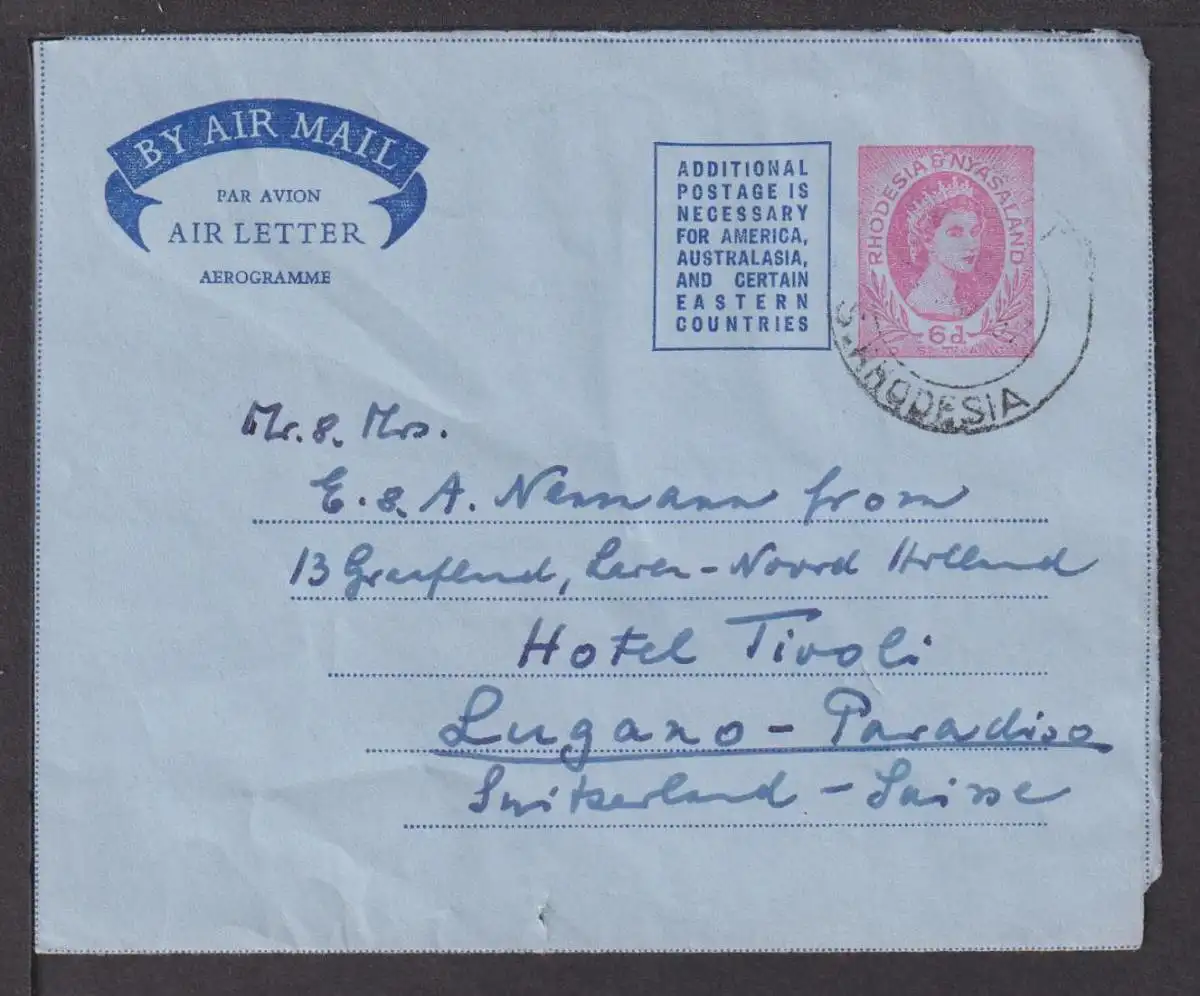 BY AIR MAIL
PAR AVION
AIR LETTER
AEROGRAMME
ADDITIONAL
POSTAGE IS
NECESSARY
FOR AMERICA,
AUSTRALASIA,
AND CERTAIN
EASTERN
COUNTRIES
RHODESIA & NYASALAND
6d.
S. RHODESIA
Mr. & Mrs.
E. & A. Nemann from
13 Graeflend, Laren - Noord Holland
Hotel Tivoli
Lugano - Paradiso
Switzerland - Suisse